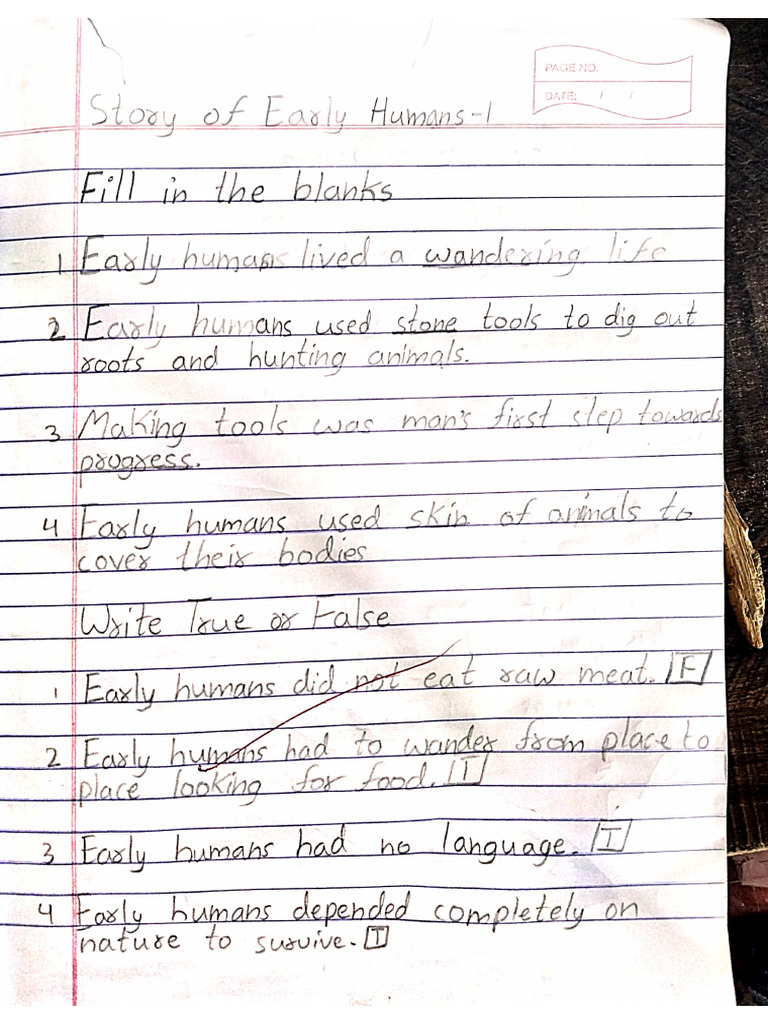 PAGE NO.
DATE: / /
Story of Early Humans-1
Fill in the blanks
1 Early humans lived a wandering life
2 Early humans used stone tools to dig out
roots and hunting animals.
3 Making tools was man's first step towards
progress.
4 Early humans used skin of animals to
cover their bodies
Write True or False
1 Early humans did not eat raw meat. F
2 Early humans had to wander from place to
place looking for food. T
3 Early humans had no language. T
4 Early humans depended completely on
nature to survive. T